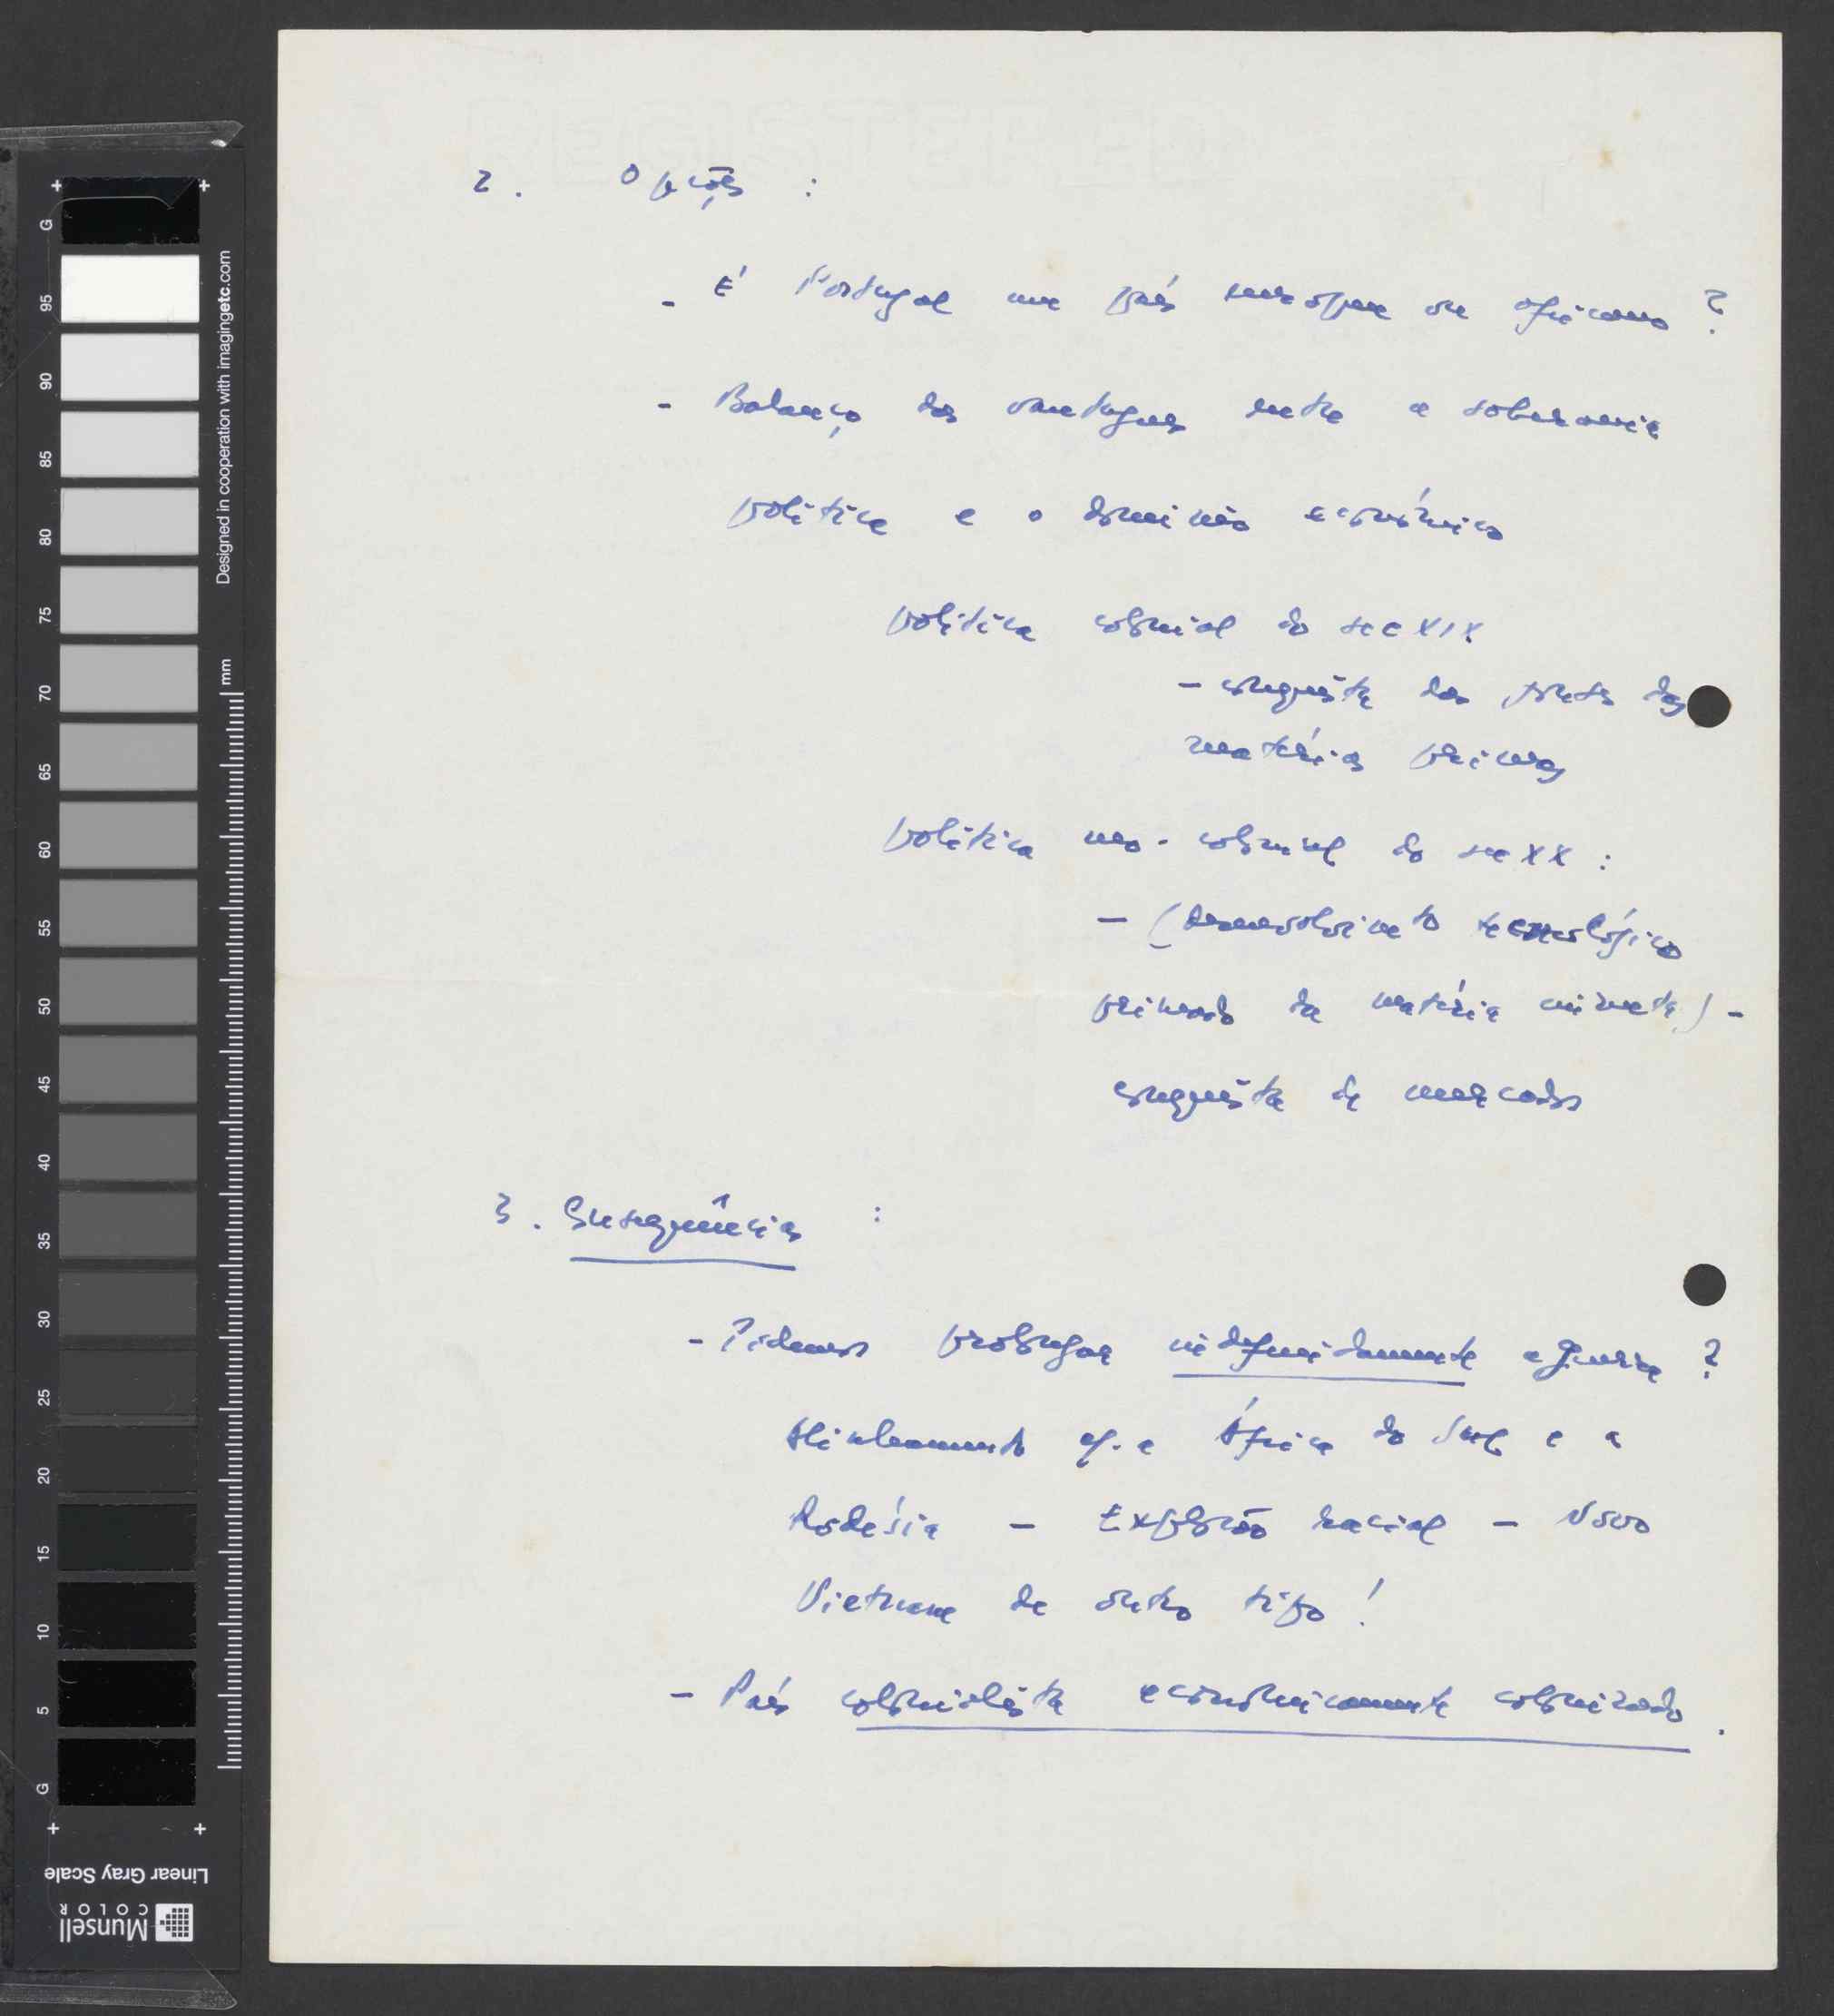 2. Opções :
- É Portugal um país europeu ou africano ?
- Balanço das vantagens entre a soberania
política e o domínio económico
política colonial do sec XIX
- conquista das fontes das
matérias primas
política neo-colonial do sec XX :
- (desenvolvimento tecnológico
primado da matéria cinzenta) -
conquista de mercados
3. Consequências :
- Podemos prolongar indefinidamente a guerra ?
Alinhamento c/. a África do Sul e a
Rodésia - Explosão racial - Novo
Vietname de outro tipo !
- País colonialista economicamente colonizado.
G
95
90
85
80
75
70
65
60
55
50
45
40
35
30
25
20
15
10
5
G
mm
Designed in cooperation with imagingetc.com
Linear Gray Scale
Munsell
COLOR